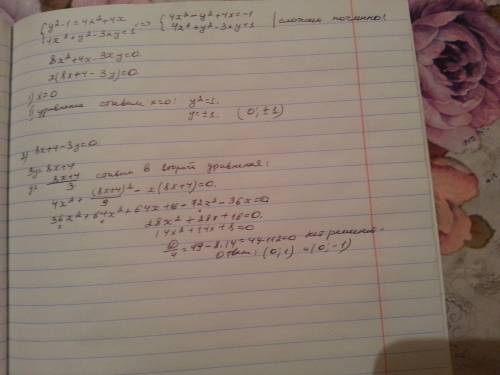 {y²-1=4x²+4x <=> {4x²-y²+4x=-1 | сложим почленно:
{4x²+y²-3xy=1 {4x²+y²-3xy=1
8x²+4x-3xy=0
x(8x+4-3y)=0
1) x=0
уравнение ставим x=0: y²=1.
y=±1. (0;±1)
2) 8x+4-3y=0
3y=8x+4
y= (8x+4)/3 ставим в второй уравнения:
4x²+ (8x+4)²/9 - x(8x+4)=0.
36x²+64x²+64x+16-72x²-36x=0
28x²+28x+16=0.
14x²+14x+8=0
D/4=49-8·14=49-112<0 нет решений.
Ответ: (0;1) и (0;-1)